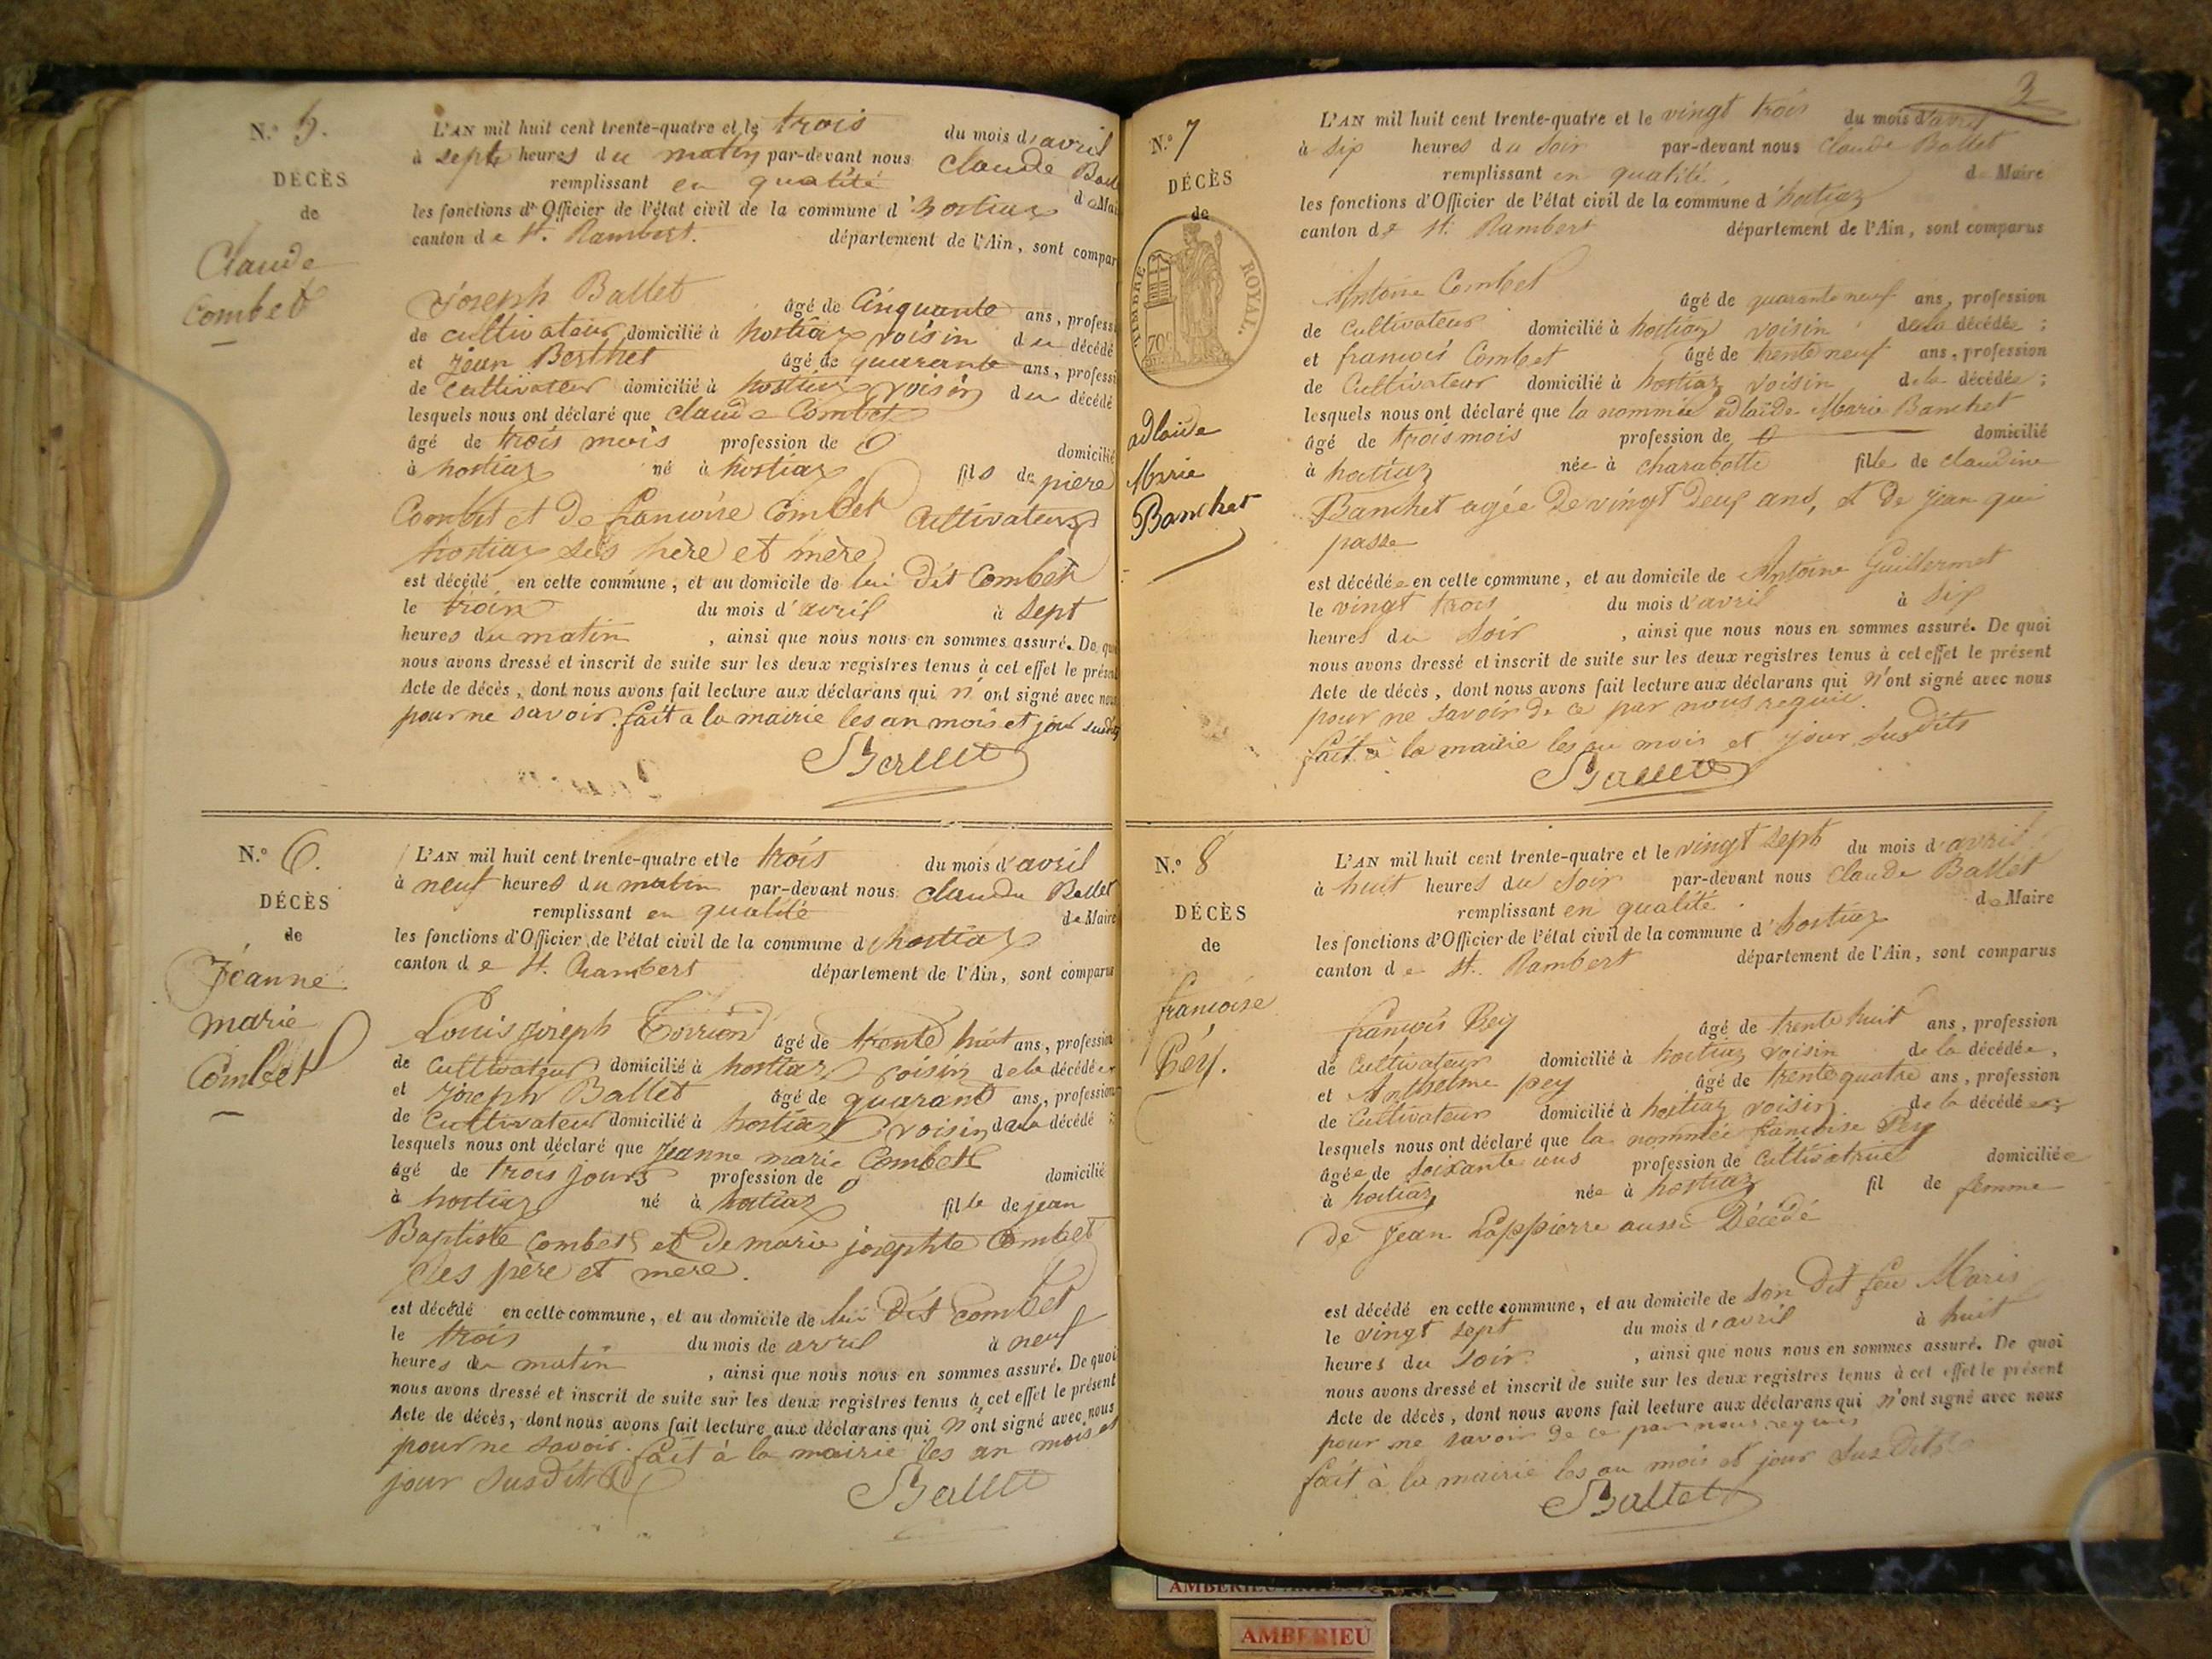 N.° 5.
DÉCÈS
de
Claude
Combet
L'AN mil huit cent trente-quatre et le trois du mois d'avril
à sept heures du matin par-devant nous Claude
remplissant en qualité de Mai
les fonctions d'Officier de l'état civil de la commune d'hostiaz
canton de St. Rambert. département de l'Ain, sont compar
Joseph Ballet âgé de Cinquante ans, professi
de cultivateur domicilié à hostiaz voisin du décédé
et Jean Berthet âgé de quarante ans, professi
de cultivateur domicilié à hostiaz voisin du décédé
lesquels nous ont déclaré que claude Combet
âgé de trois mois profession de 0 domicilié
à hostiaz né à hostiaz fils de piere
Combet et de francoise Combet Cultivateurs
hostiaz ses père et mère
est décédé en cette commune, et au domicile de lui dit Combet
le trois du mois d'avril à sept
heures du matin, ainsi que nous nous en sommes assuré. De quo
nous avons dressé et inscrit de suite sur les deux registres tenus à cet effet le présent
Acte de décès, dont nous avons fait lecture aux déclarans qui n'ont signé avec nous
pour ne savoir. fait a la mairie les an mois et jour susdits
Ballet
N.° 6.
DÉCÈS
de
Jeanne
marie
Combet
L'AN mil huit cent trente-quatre et le trois du mois d'avril
à neuf heures du matin par-devant nous claude Ballet
remplissant en qualité de Maire
les fonctions d'Officier de l'état civil de la commune d'hostiaz
canton de St. Rambert département de l'Ain, sont comparus
Louis joseph âgé de trente huit ans, profession
de Cultivateur domicilié à hostiaz voisin dela décédée
et Joseph Ballet âgé de quarant ans, profession
de Cultivateur domicilié à hostiaz voisin dela décédé ;
lesquels nous ont déclaré que Jeanne marie Combet
âgé de trois jours profession de 0 domicilié
à hostiaz né à hostiaz fille de jean
Baptiste Combet et de marie josephte Combet
ses père et mère.
est décédé en cette commune, et au domicile de lui dit Combet
le trois du mois de avril à neuf
heures du matin, ainsi que nous nous en sommes assuré. De quoi
nous avons dressé et inscrit de suite sur les deux registres tenus à cet effet le présent
Acte de décès, dont nous avons fait lecture aux déclarans qui n'ont signé avec nous
pour ne savoir. fait à la mairie les an mois et
jour susdits
Ballet
3
N.° 7
DÉCÈS
de
TIMBRE ROYAL.
70c
adlaïde
Marie
Banchet
L'AN mil huit cent trente-quatre et le vingt trois du mois d'avril
à six heures du soir par-devant nous Claude Ballet
remplissant en qualité de Maire
les fonctions d'Officier de l'état civil de la commune d'hostiaz
canton de St. Rambert département de l'Ain, sont comparus
Antoine Combet âgé de quarante neuf ans, profession
de Cultivateur domicilié à hostiaz voisin dela décédée ;
et françois Combet âgé de trente neuf ans, profession
de Cultivateur domicilié à hostiaz voisin dela décédée ;
lesquels nous ont déclaré que la nommée adlaïde Marie Banchet
âgé de trois mois profession de 0 domicilié
à hostiaz née à charabotte fille de claudine
Banchet agée de vingt deux ans, et de jean qui
passe
est décédée en cette commune, et au domicile de Antoine Guillermet
le vingt trois du mois d'avril à six
heures du soir, ainsi que nous nous en sommes assuré. De quoi
nous avons dressé et inscrit de suite sur les deux registres tenus à cet effet le présent
Acte de décès, dont nous avons fait lecture aux déclarans qui n'ont signé avec nous
pour ne savoir de ce par nous requis.
fait à la mairie les an mois et jour susdits
Ballet
N.° 8
DÉCÈS
de
francoise
Pey.
L'AN mil huit cent trente-quatre et le vingt sept du mois d'avril
à huit heures du soir par-devant nous Claude Ballet
remplissant en qualité. de Maire
les fonctions d'Officier de l'état civil de la commune d'hostiaz
canton de St. Rambert département de l'Ain, sont comparus
françois Pey âgé de trente huit ans, profession
de Cultivateur domicilié à hostiaz voisin de la décédée,
et Anthelme pey âgé de trente quatre ans, profession
de Cultivateur domicilié à hostiaz voisin. de la décédée ;
lesquels nous ont déclaré que la nommée francoise Pey
âgée de soixante ans profession de Cultivatrice domiciliée
à hostiaz née à hostiaz fil de femme
de Jean Lappierre aussi Décédé
est décédé en cette commune, et au domicile de son dit feu Maris
le vingt sept du mois d'avril à huit
heures du soir., ainsi que nous nous en sommes assuré. De quoi
nous avons dressé et inscrit de suite sur les deux registres tenus à cet effet le présent
Acte de décès, dont nous avons fait lecture aux déclarans qui n'ont signé avec nous
pour ne savoir de ce par nous requis
fait à la mairie les an mois et jour susdits
Ballet
AMBERIEU
AMBERIEU